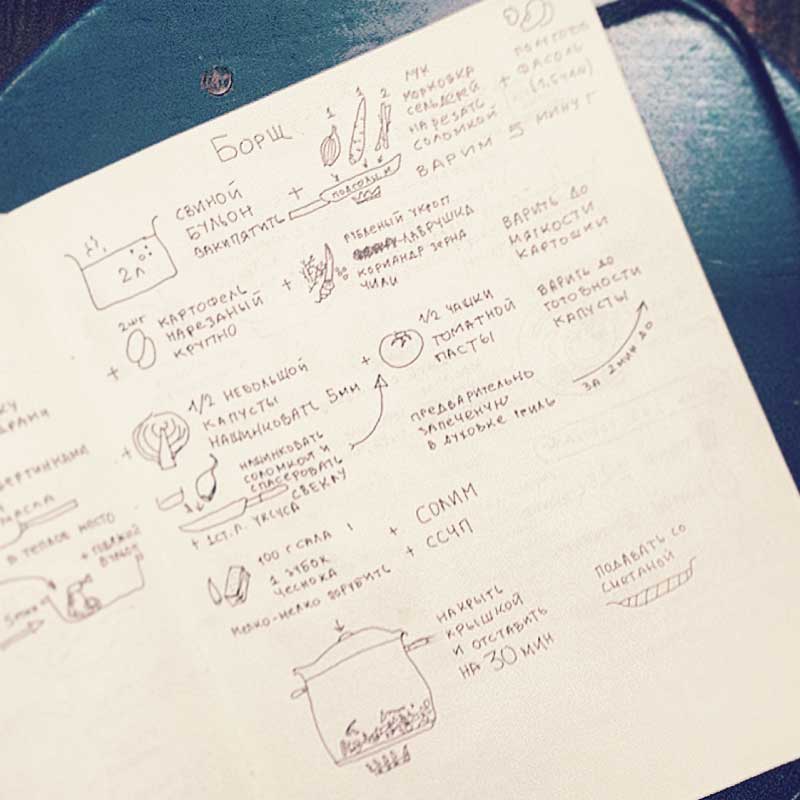 Борщ
2л
свиной
бульон
закипятить
+
1 1 2
лук
морковка
сельдерей
нарезать
соломкой
+
фасоль
варим 5 минут
+
2шт
картофель
нарезанный
крупно
+
рубленый укроп
лаврушка
кориандр зерна
чили
варить до
мягкости
картошки
+
1/2 небольшой
капусты
нашинковать 5мм
+
1/2 чашки
томатной
пасты
варить до
готовности
капусты
нашинковать
соломкой и
спассеровать
свеклу
+ 1ст.л. уксуса
предварительно
запеченую
в духовке гриль
за 2 мин до
100 г сала
1 зубок
чеснока
мелко-мелко порубить
+ солим
+ ССЧП
накрыть
крышкой
и отставить
на 30 мин
подавать со
сметаной
масла
в теплое место